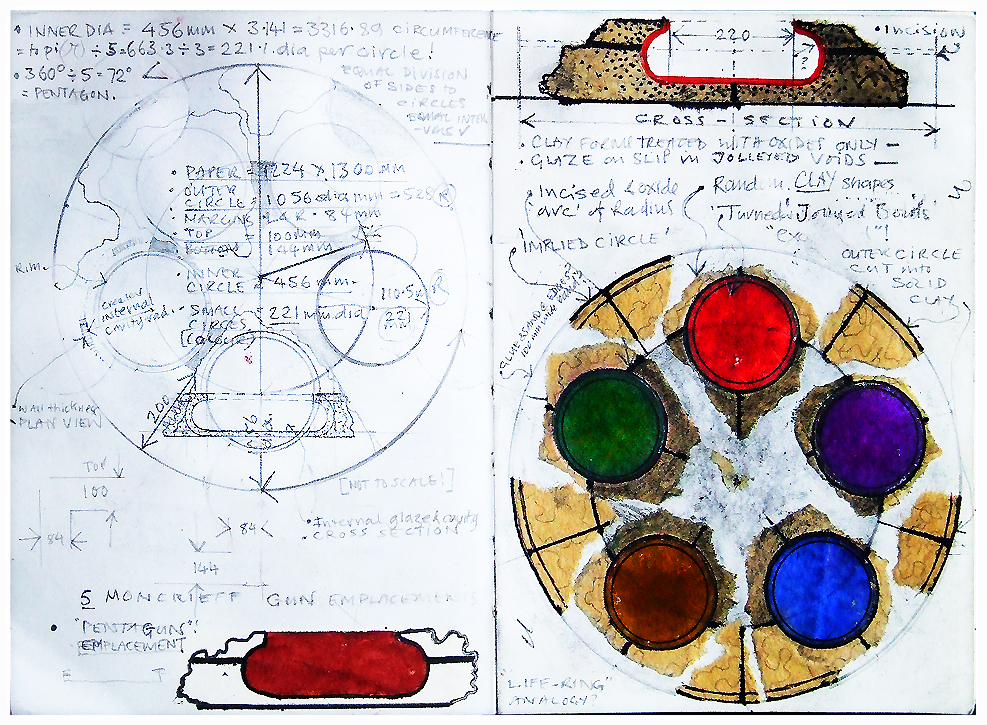 • INNER DIA = 456mm × 3·141 = 3316·89 CIRCUMFERENCE
÷ 5 = 663·3 ÷ 3 = 221·1 dia per circle!
• 360° ÷ 5 = 72° ∠
= PENTAGON.
EQUAL DIVISION
OF SIDES TO
CIRCLES
EQUAL INTER
-VALS ✓
• PAPER = 1224 × 1300 MM
• OUTER
CIRCLE = 1056 dia mm = 528 (R)
• MARGINS L & R · 84mm
• TOP = 100mm
• BOTTOM 144mm
• INNER
CIRCLE = 456 mm
• SMALL = 221 mm dia
CIRCLES
(COLOUR)
110·5 (R)
221
Rim
internal
cavity rad.
200
• Wall thickness
PLAN VIEW
[NOT TO SCALE!]
TOP
100
84
84
144
• Internal glazed cavity
CROSS SECTION
5 MONCRIEFF GUN EMPLACEMENTS
• "PENTAGUN"!
EMPLACEMENT
220
?
• Incision
CROSS-SECTION
• CLAY FORMS TREATED WITH OXIDES ONLY –
• GLAZE on SLIP in JOLLEYED VOIDS –
• Incised & oxide
'arc' of Radius
'IMPLIED CIRCLE'
• Random CLAY shapes
'Turned' Jolleyed Bowls'
OUTER CIRCLE
CUT into
SOLID
CLAY
"LIFE-RING"
ANALOGY?